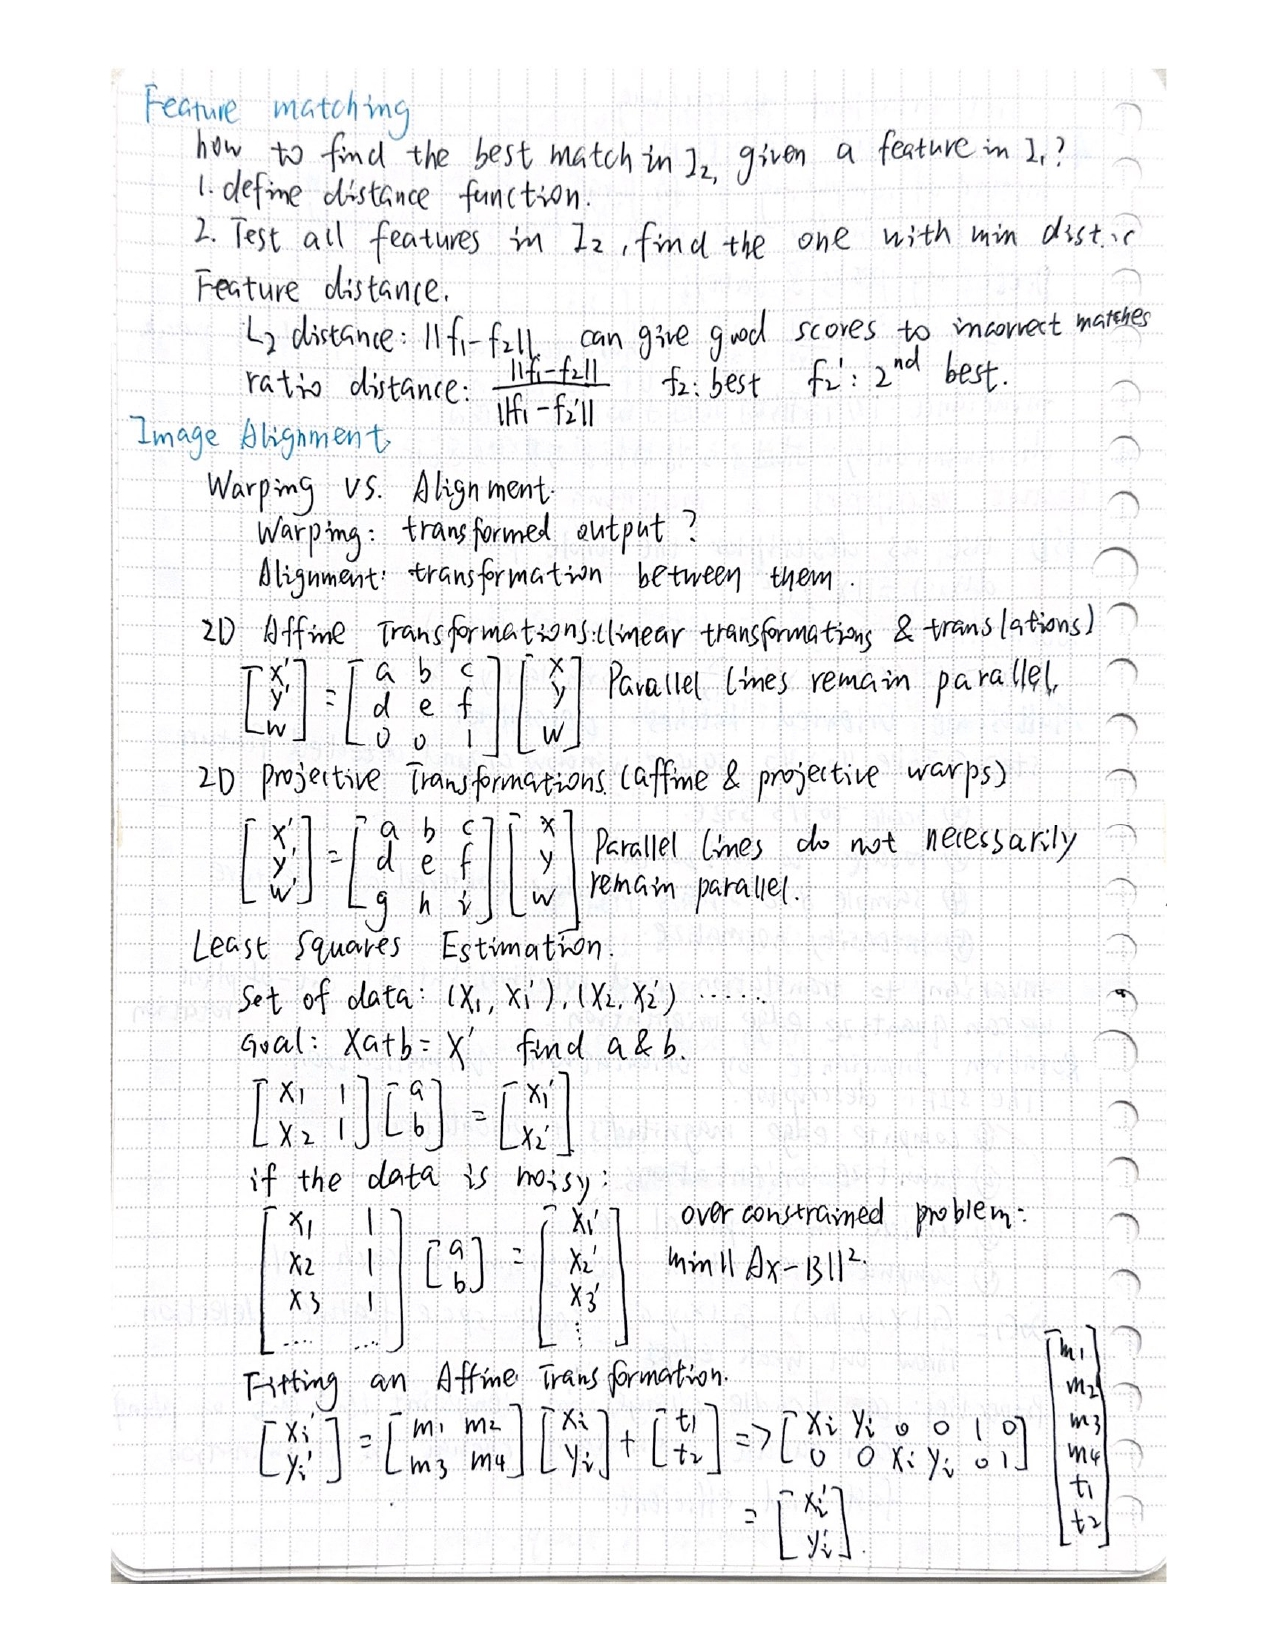 Feature matching
how to find the best match in I₂, given a feature in I₁?
1. define distance function.
2. Test all features in I₂, find the one with min dist.
Feature distance.
L₂ distance: ||f₁-f₂||. can give good scores to incorrect matches
ratio distance: ||f₁-f₂|| / ||f₁-f₂'|| f₂: best f₂': 2nd best.
Image Alignment
Warping vs. Alignment.
Warping: transformed output?
Alignment: transformation between them.
2D Affine Transformations: (linear transformations & translations)
[x' y' w] = [a b c; d e f; 0 0 1] [x y w] Parallel lines remain parallel.
2D projective Transformations (affine & projective warps)
[x' y' w'] = [a b c; d e f; g h i] [x y w] Parallel lines do not necessarily
remain parallel.
Least Squares Estimation.
Set of data: (X₁, X₁'), (X₂, X₂') ......
Goal: Xa+b = X' find a & b.
[X₁ 1; X₂ 1] [a b] = [X₁' X₂']
if the data is noisy:
[X₁ 1; X₂ 1; X₃ 1; .... ...] [a b] = [X₁' X₂' X₃' ⋮] over constrained problem:
min || Ax-B||².
Fitting an Affine Transformation.
[Xi' yi'] = [m₁ m₂; m₃ m₄] [Xi yi] + [t₁ t₂] => [Xi yi 0 0 1 0; 0 0 Xi yi 0 1] [m₁ m₂ m₃ m₄ t₁ t₂]
= [Xi' yi'].